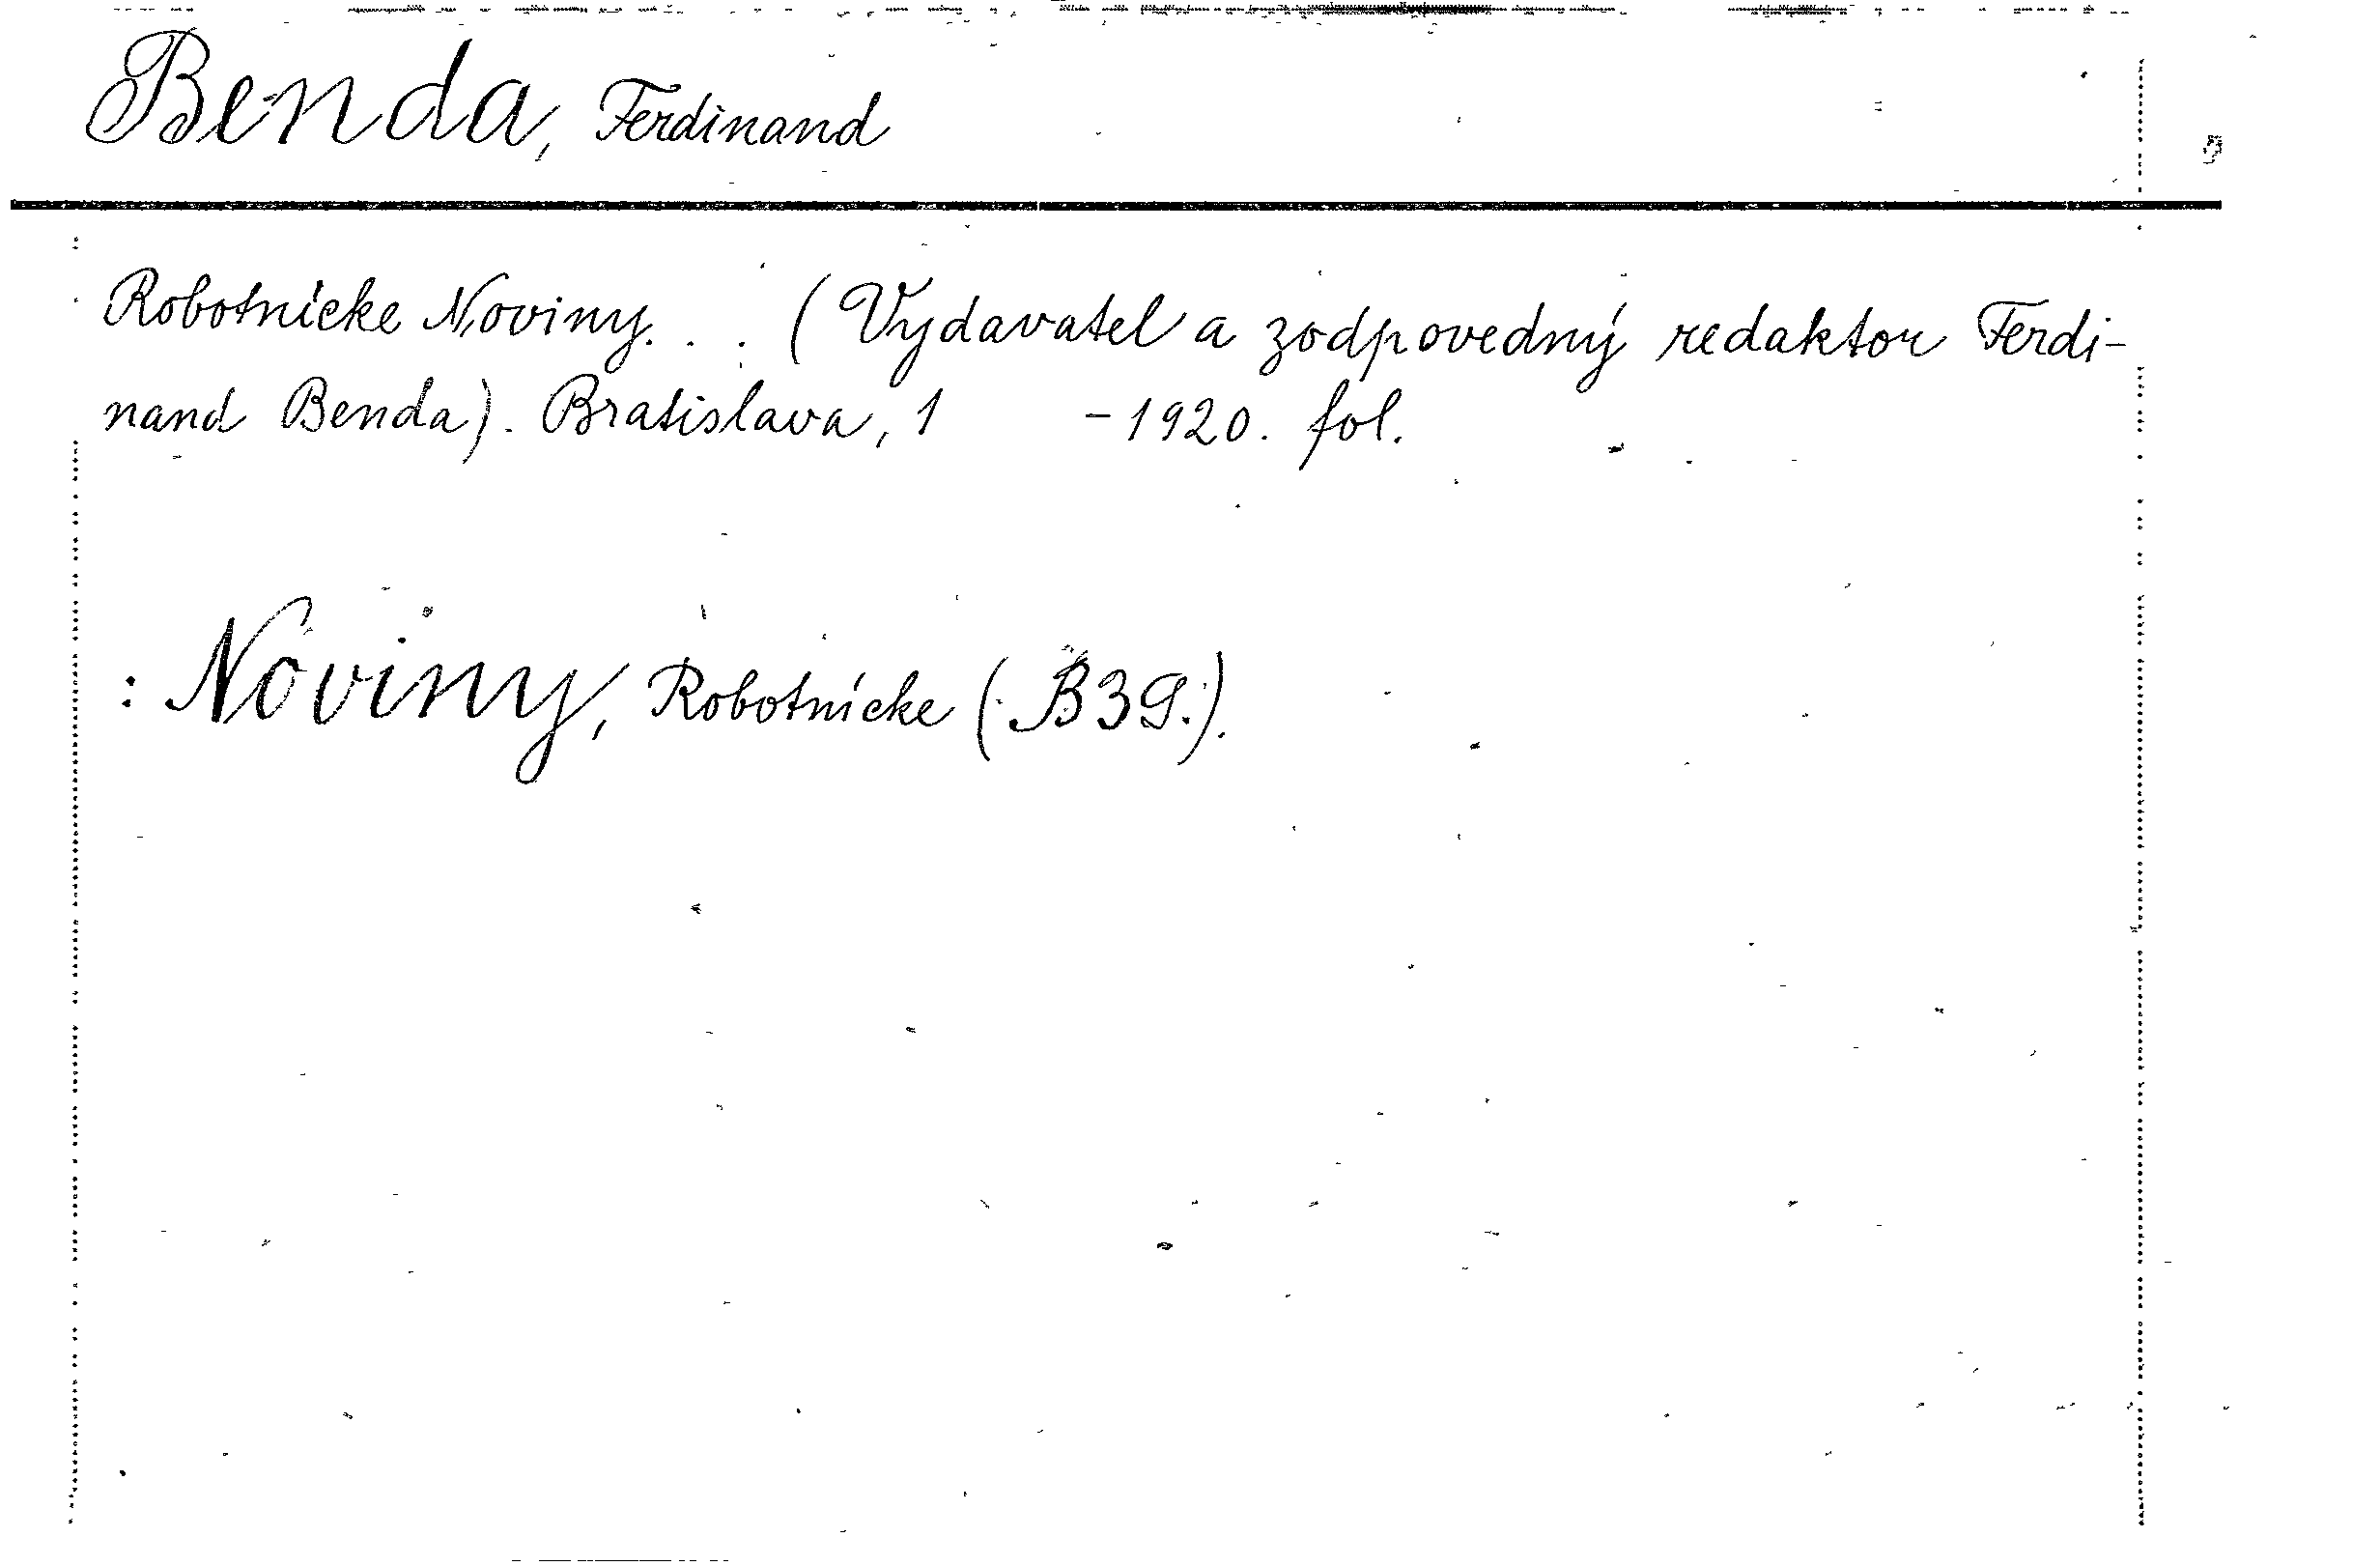 Benda, Ferdinand
Robotnícke Noviny... (Vydavatel a zodpovedný redaktor Ferdi-
nand Benda). Bratislava, 1 -1920. fol.
: Noviny, Robotnícke (B39.).